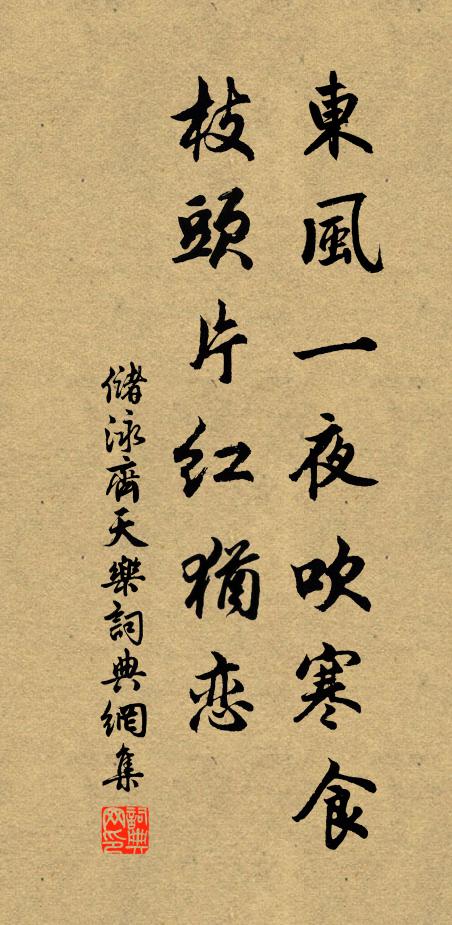 東風一夜吹寒食
枝頭片红猶恋
儲泳齊天樂詞典網集
詞典网印